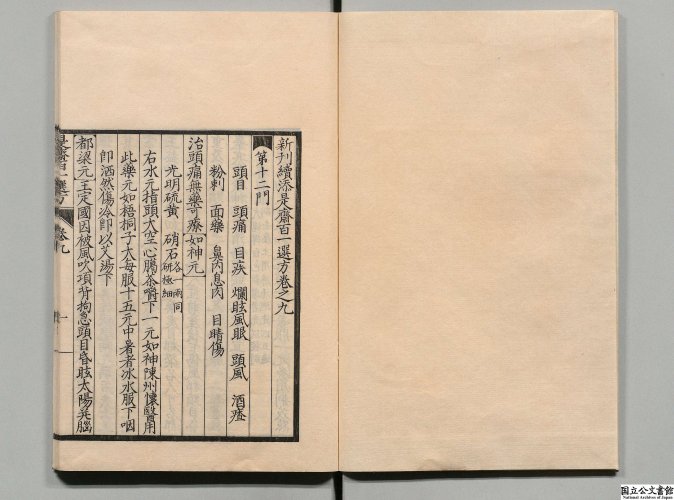 新刊續添是齋百一選方卷之九
第十二門
頭目　頭痛　目疾　爛眩風眼　頭風　酒齄
粉刺　面藥　鼻內息肉　目睛傷
治頭痛無藥可療如神元
光明硫黃　硝石各一兩同研極細
右水元指頭大空心臈茶嚼下一元如神陳州懷醫用
此藥元如梧桐子大每服十五元中暑者冰水服下咽
即洒然傷冷即以艾湯下
都梁元王定國因被風吹項背拘急頭目昏眩太陽并腦
是齋百一選方
卷九
一
国立公文書館
National Archives of Japan